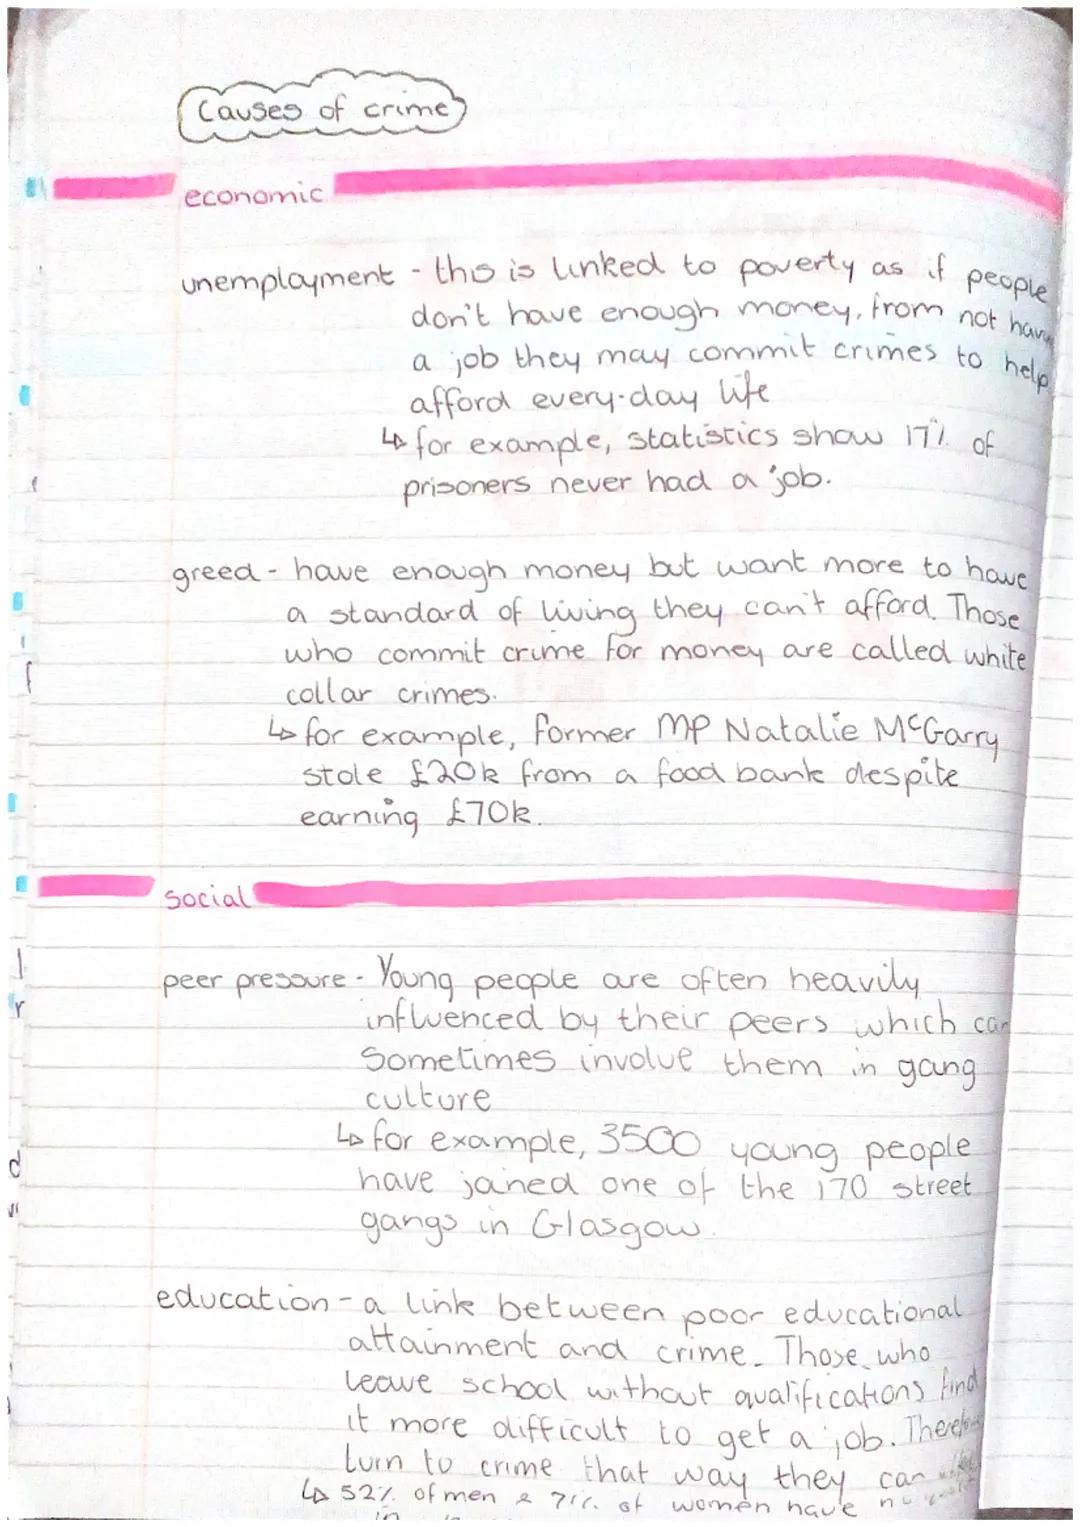 Causes of crime
economic
unemployment - this is linked to poverty as if people
don't have enough money, from not
a job they may commit crimes to help
afford every-day life
↳ for example, statistics show 17% of
prisoners never had a job.
greed - have enough money but want more to have
a standard of living they can't afford. Those
who commit crime for money are called white
collar crimes.
↳ for example, former MP Natalie McGarry
stole £20k from a food bank despite
earning £70k.
social
peer pressure - Young people are often heavily
influenced by their peers which can
sometimes involve them in gang
culture
↳ for example, 3500 young people
have joined one of the 170 street
gangs in Glasgow.
education - a link between poor educational
attainment and crime. Those who
leave school without qualifications find
it more difficult to get a job.
turn to crime that way they can
↳ 52% of men & 71% of women have no